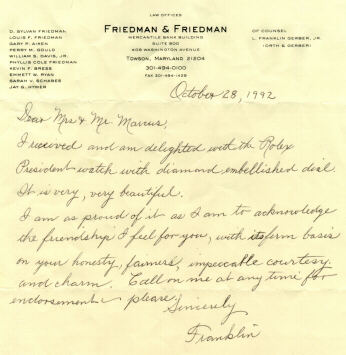 LAW OFFICES
FRIEDMAN & FRIEDMAN
MERCANTILE BANK BUILDING
SUITE 900
409 WASHINGTON AVENUE
TOWSON, MARYLAND 21204
301-494-0100
FAX 301-494-1429
D. SYLVAN FRIEDMAN
LOUIS F. FRIEDMAN
GARY R. AIKEN
PERRY M. GOULD
WILLIAM S. DAVIS, JR.
PHYLLIS COLE FRIEDMAN
KEVIN F. BRESS
EMMETT W. RYAN
SARAH V. SCHABES
JAY G.
OF COUNSEL
L. FRANKLIN GERBER, JR.
(ORTH & GERBER)
October 28, 1992
Dear Mrs & Mr. Marcus,
I received and am delighted with the Rolex
President watch with diamond embellished dial.
It is very, very beautiful.
I am as proud of it as I am to acknowledge
the friendship I feel for you, with its firm basis
on your honesty, fairness, impeccable courtesy
and charm. Call on me at any time for
endorsement please!
Sincerely
Franklin